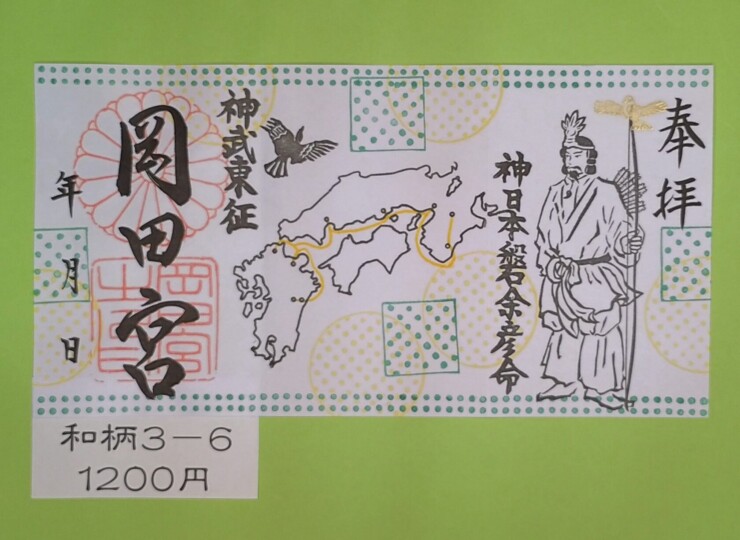 奉拝
神日本磐余彦命
神武東征
岡田宮
年 月 日
和柄3−6
1200円